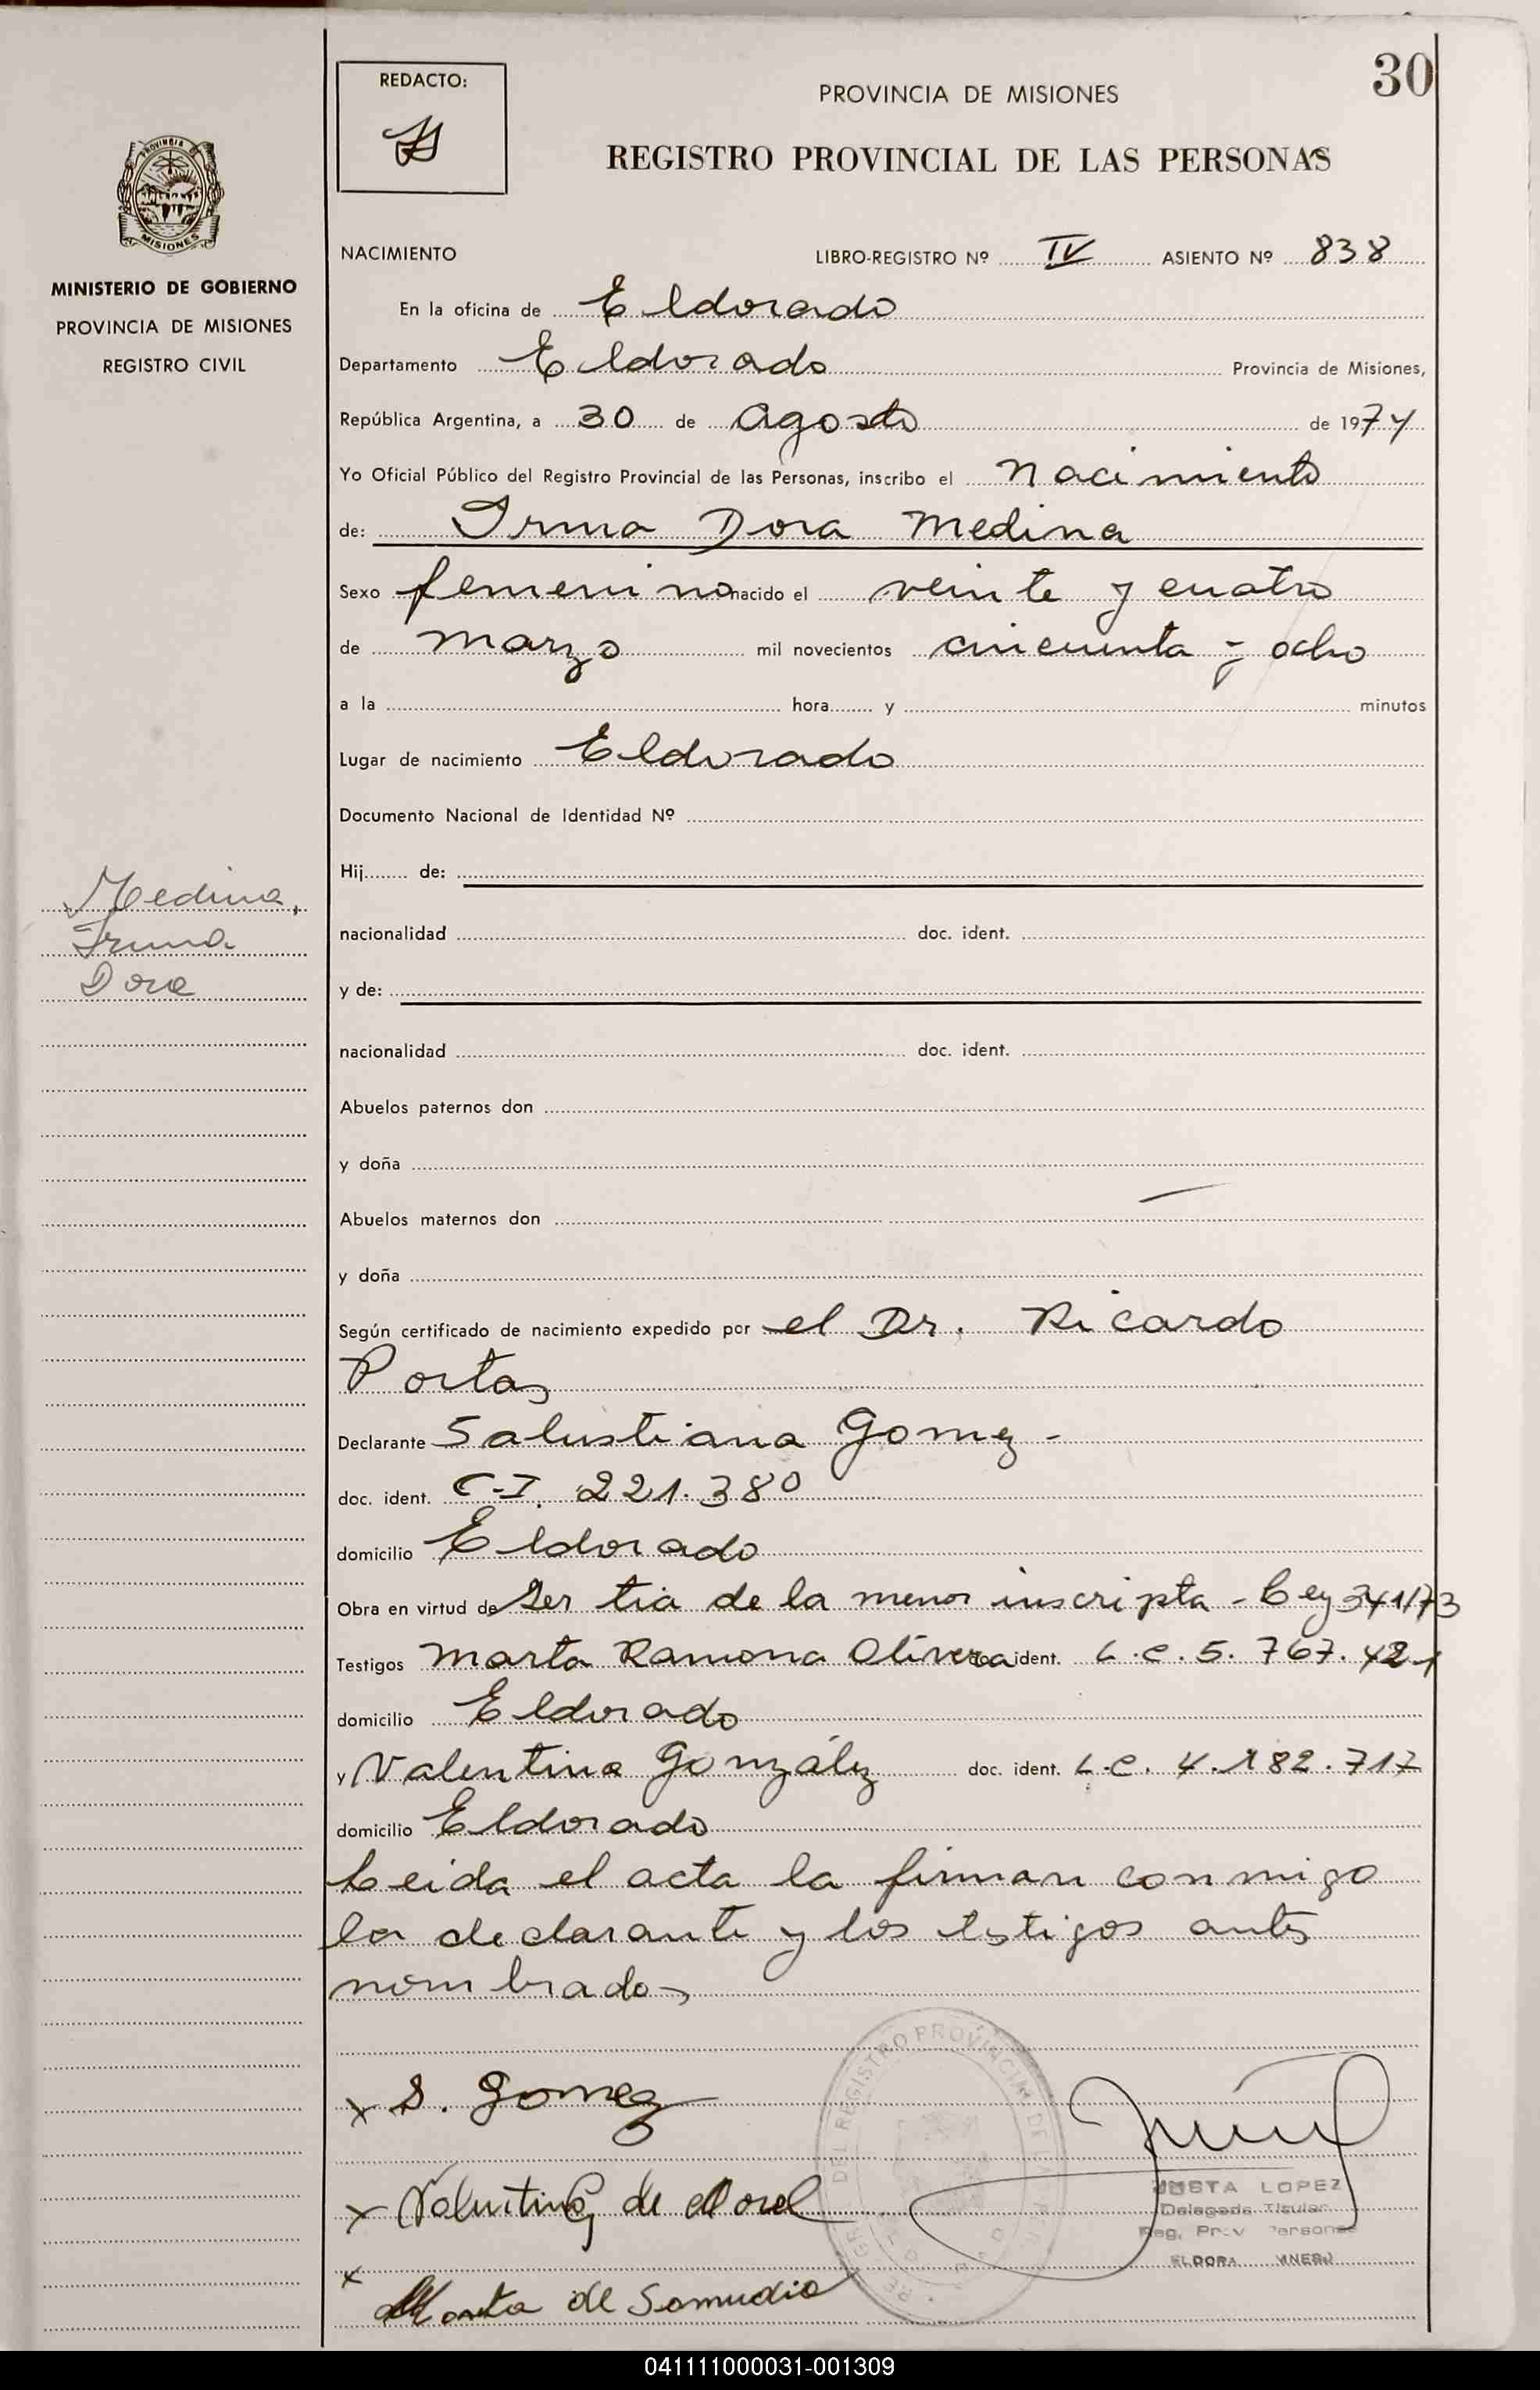 30
REDACTO:
PROVINCIA DE MISIONES
REGISTRO PROVINCIAL DE LAS PERSONAS
PROVINCIA
MISIONES
MINISTERIO DE GOBIERNO
PROVINCIA DE MISIONES
REGISTRO CIVIL
NACIMIENTO LIBRO-REGISTRO Nº IV ASIENTO Nº 838
En la oficina de Eldorado
Departamento Eldorado Provincia de Misiones,
República Argentina, a 30 de Agosto de 1974
Yo Oficial Público del Registro Provincial de las Personas, inscribo el Nacimiento
de: Irma Dora Medina
Sexo femenino nacido el veinte y cuatro
de marzo mil novecientos cincuenta y ocho
a la hora y minutos
Lugar de nacimiento Eldorado
Documento Nacional de Identidad Nº
Hij de:
Medina,
Irma
Dora
nacionalidad doc. ident.
y de:
nacionalidad doc. ident.
Abuelos paternos don
y doña
Abuelos maternos don
y doña
Según certificado de nacimiento expedido por el Dr. Ricardo
Portas
Declarante Salustiana Gomez -
doc. ident. C-I. 221.380
domicilio Eldorado
Obra en virtud de Ser tia de la menor inscripta - Ley 341/73
Testigos Marta Ramona Olivera ident. L.C. 5.767.421
domicilio Eldorado
y Valentina González doc. ident. L.C. 4.182.717
domicilio Eldorado
Leida el acta la firman conmigo
la declarante y los testigos antes
nombrados
x S. Gomez
x Valentina G de Morel
x
Marta de Samudio
DEL REGISTRO PROVINCIAL DE LA
JUSTA LOPEZ
Delegada Titular
Reg. Prov Personas
041111000031-001309